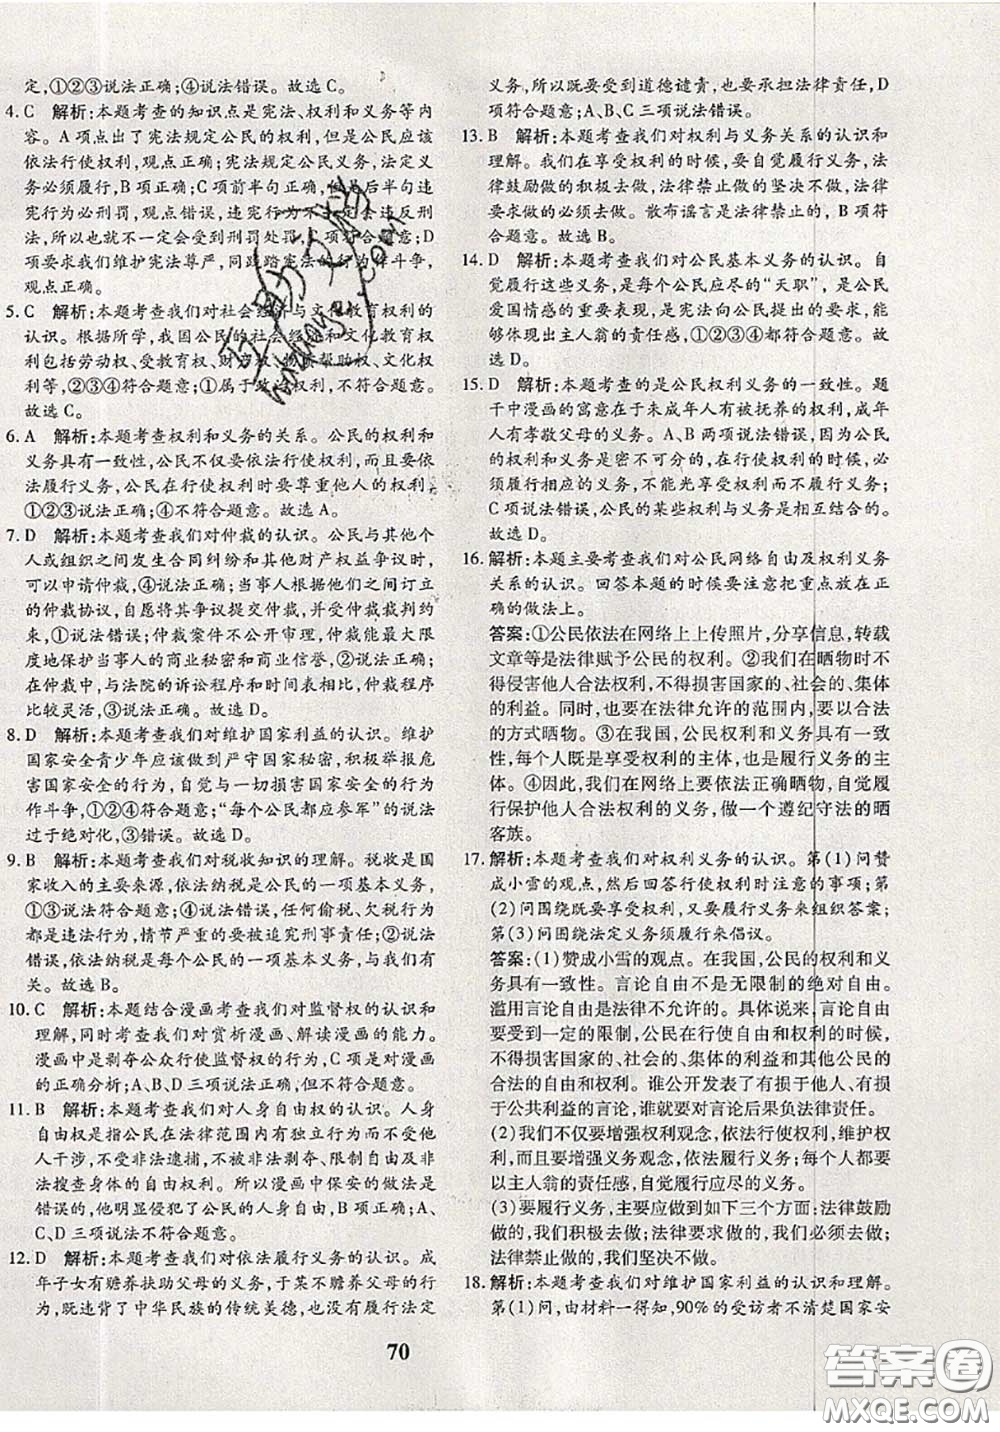 定,①②③说法正确;④说法错误。故选C。
4. C 解析:本题考查的知识点是宪法、权利和义务等内
容。A项点出了宪法规定公民的权利,公民应该
依法行使权利,观点正确;宪法规定公民义务,法定义
务必须履行,B项正确;C项前半句正确,但是后半句违
宪行为必刑罚,观点错误,违宪行为不一定会违反刑
法,所以也就不一定会受到刑罚处罚,C项符合题意;D
项要求我们维护宪法尊严,同践踏宪法的行为作斗争,
观点正确。
5. C 解析:本题考查我们对社会经济与文化教育权利
的认识。根据所学,我国公民的社会经济和文化教育权
利包括劳动权、受教育权、财产权、物质帮助权、文化权
利等,②③④符合题意;①属于政治权利,不符合题意。
故选C。
6. A 解析:本题考查权利和义务的关系。公民的权利和
义务具有一致性,公民不仅要依法行使权利,而且要依
法履行义务,公民在行使权利时要尊重他人的权利,
①②③符合题意;④不符合题意。故选A。
7. D 解析:本题考查我们对仲裁的认识。公民与其他个
人或组织之间发生合同纠纷和其他财产权益争议时,
可以申请仲裁,④说法正确;当事人根据他们之间订立
的仲裁协议,自愿将其争议提交仲裁,并接受仲裁判约
束,①说法错误;仲裁案件不公开审理,仲裁能最大限
度地保护当事人的商业秘密和商业信誉,②说法正确;
在仲裁中,与法院的诉讼程序和时间表相比,仲裁程序
比较灵活,③说法正确。故选D。
8. D 解析:本题考查我们对维护国家利益的认识。维护
国家安全青少年应该做到严守国家秘密,积极举报危
害国家安全的行为,自觉与一切损害国家安全的行为
作斗争,①②④符合题意;“每个公民都应参军”的说法
过于绝对化,③错误。故选D。
9. B 解析:本题考查我们对税收知识的理解。税收是国
家收入的主要来源,依法纳税是公民的一项基本义务,
①③说法正确;④说法错误,任何偷税、欠税行为
都是违法行为,情节严重的要被追究刑事责任;②说法
错误,依法纳税是每个公民的一项基本义务,与我们有
关。故选B。
10. C 解析:本题结合漫画考查我们对监督权的认识和
理解,同时考查我们对赏析漫画、解读漫画的能力。
漫画中是剥夺公众行使监督权的行为,C项是对漫画
的正确分析;A、B、D三项说法正确,但不符合题意。
11. B 解析:本题考查我们对人身自由权的认识。人身
自由权是指公民在法律范围内有独立行为而不受他
人干涉,不受非法逮捕,不被非法剥夺、限制自由及非
法搜查身体的自由权利。所以漫画中保安的做法是
错误的,他明显侵犯了公民的人身自由,B项符合题意;A、
C、D三项说法不符合题意。
12. D 解析:本题考查我们对依法履行义务的认识。成
年子女有赡养扶助父母的义务,于某不赡养父母的行
为,既违背了中华民族的传统美德,也没有履行法定
义务,所以既要受到道德谴责,又要承担法律责任,D
项符合题意;A、B、C三项说法错误。
13. B 解析:本题考查我们对权利与义务关系的认识和
理解。我们在享受权利的时候,要自觉履行义务,法
律鼓励做的积极去做,法律禁止做的坚决不做,法律
要求做的必须去做。散布谣言是法律禁止的,B项符
合题意。故选B。
14. D 解析:本题考查我们对公民基本义务的认识。自
觉履行这些义务,是每个公民应尽的“天职”,是公民
爱国情感的重要表现,是宪法向公民提出的要求,能
够体现出主人翁的责任感,①②③④都符合题意。故
选D。
15. D 解析:本题考查的是公民权利义务的一致性。题
干中漫画的寓意在于未成年人有被抚养的权利,成年
人有孝敬父母的义务。A、B两项说法错误,因为公民
的权利和义务是密不可分的,在行使权利的时候,必
须履行相应的义务,不能光享受权利而不履行义务;
C项说法错误,公民的某些权利与义务是相互结合的。
故选D。
16. 解析:本题主要考查我们对公民网络自由及权利义务
关系的认识。回答本题的时候要注意把重点放在正
确的做法上。
答案:①公民依法在网络上上传照片,分享信息,转载
文章等是法律赋予公民的权利。②我们在晒物时不
得侵害他人合法权利,不得损害国家的、社会的、集体
的利益。同时,也要在法律允许的范围内,要以合法
的方式晒物。③在我国,公民权利和义务具有一致
性,每个人既是享受权利的主体,也是履行义务的主
体。④因此,我们在网络上要依法正确晒物,自觉履
行保护他人合法权利的义务,做一个遵纪守法的晒
客族。
17. 解析:本题考查我们对权利义务的认识。第(1)问赞
成小雪的观点,然后回答行使权利时注意的事项;第
(2)问围绕既要享受权利,又要履行义务来组织答案;
第(3)问围绕法定义务须履行来倡议。
答案:(1)赞成小雪的观点。在我国,公民的权利和义
务具有一致性。言论自由不是无限制的绝对自由,
滥用言论自由是法律不允许的。具体说来,言论自由
要受到一定的限制,公民在行使自由和权利的时候,
不得损害国家的、社会的、集体的利益和其他公民的
合法的自由和权利。谁公开发表了有损于他人、有损
于公共利益的言论,谁就要对言论后果负法律责任。
(2)我们不仅要增强权利观念,依法行使权利,维护权
利,而且要增强义务观念,依法履行义务;每个人都要
以主人翁的责任感,自觉履行应尽的义务。
(3)要履行义务,主要应做到如下三个方面:法律鼓励
做的,我们积极去做;法律要求做的,我们必须去做;
法律禁止做的,我们坚决不做。
18. 解析:本题考查我们对维护国家利益的认识和理解。
第(1)问,由材料一得知,90%的受访者不清楚国家安
70
答案卷
MXQE.COM